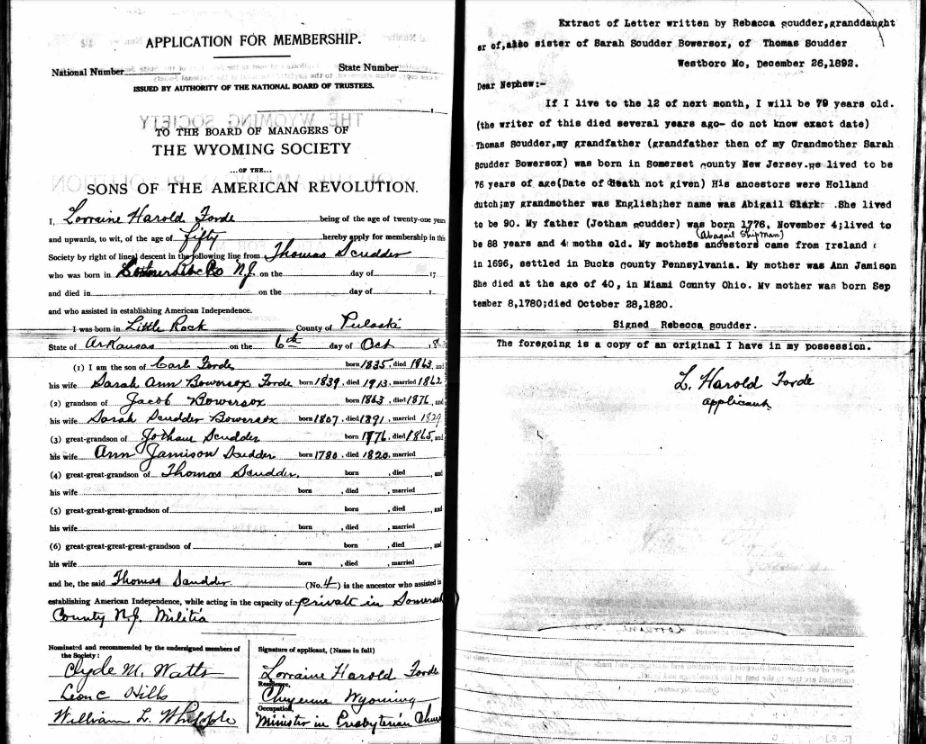 APPLICATION FOR MEMBERSHIP.
National Number
State Number
ISSUED BY AUTHORITY OF THE NATIONAL BOARD OF TRUSTEES.
TO THE BOARD OF MANAGERS OF
THE WYOMING SOCIETY
...OF THE...
SONS OF THE AMERICAN REVOLUTION.
I, Lorraine Harold Forde being of the age of twenty-one years
and upwards, to wit, of the age of fifty hereby apply for membership in this
Society by right of lineal descent in the following line from Thomas Scudder
who was born in Somerset Co N.J. on the day of 17
and died in on the day of
and who assisted in establishing American Independence.
I was born in Little Rock County of Pulaski
State of Arkansas on the 6th day of Oct
(1) I am the son of Carl Forde born 1835, died 1863, and
his wife Sarah Ann Bowersox Forde born 1839, died 1913, married 1862
(2) grandson of Jacob Bowersox born 1803, died 1876, and
his wife Sarah Scudder Bowersox born 1807, died 1891, married 1829
(3) great-grandson of Jotham Scudder born 1776, died 1865, and
his wife Ann Jamison Scudder born 1780, died 1820, married
(4) great-great-grandson of Thomas Scudder, born , died , and
his wife born , died , married
(5) great-great-great-grandson of born , died , and
his wife born , died , married
(6) great-great-great-great-grandson of born , died , and
his wife born , died , married
and he, the said Thomas Scudder (No. 4) is the ancestor who assisted in
establishing American Independence, while acting in the capacity of private in Somerset
County N.J. Militia
Nominated and recommended by the undersigned members of
the Society:
Clyde M. Watts
Leon C Hills
William L. Whipple
Signature of applicant, (Name in full)
Lorraine Harold Forde
Residence,
Cheyenne Wyoming
Occupation,
Minister in Presbyterian
Extract of Letter written by Rebacca scudder,granddaught
er of,also sister of Sarah Scudder Bowersox, of Thomas Scudder
Westboro Mo, December 26,1892.
Dear Nephew:-
If I live to the 12 of next month, I will be 79 years old.
(the writer of this died several years ago- do not know exact date)
Thomas Scudder,my grandfather (grandfather then of my Grandmother Sarah
Scudder Bowersox) was born in Somerset county New Jersey.He lived to be
76 years of age(Date of death not given) His ancestors were Holland
dutch;my grandmother was English;her name was Abigail Clark .She lived
to be 90. My father (Jotham scudder) was born 1776, November 4;lived to
(Abagail Shipman)
be 88 years and 4 moths old. My mothers ancestors came from Ireland
in 1696, settled in Bucks county Pennsylvania. My mother was Ann Jamison
She died at the age of 40, in Miami County Ohio. My mother was born Sep
tember 8,1780;died October 28,1820.
Signed Rebecca scudder.
The foregoing is a copy of an original I have in my possession.
L. Harold Forde
applicant